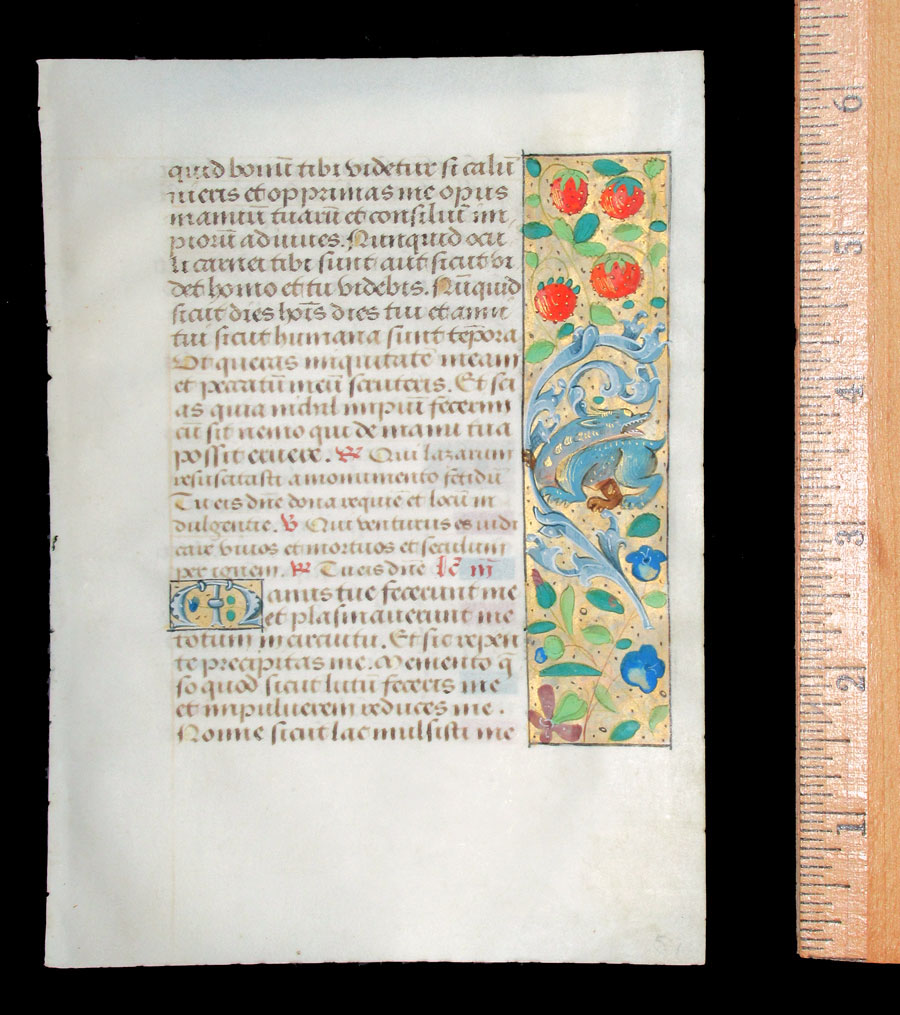 quid bonū tibi videtur si calū
nieris et opprimas me opus
manuū tuarū et consiliū im
piorū adiuves. Nunquid ocu
li carnei tibi sunt aut sicut vi
det homo et tu videbis. Nūquid
sicut dies hoīs dies tui et anni
tui sicut humana sunt tēpora
Ut queras iniquitatē meam
et peccatū meū scruteris. Et sci
as quia nichil impiū fecerim
cū sit nemo qui de manu tua
possit eruere. R Qui lazarum
resuscitasti a monumento fetidū
Tu eis dn̄e dona requiē et locū in
dulgentie. V Qui venturus es iudi
care vivos et mortuos et seculum
per ignem. R Tu eis dn̄e lc̄ m̄
Manus tue fecerunt me
et plasmaverunt me
totum in circuitu. Et sic repen
te precipitas me. Memento q̄
so quod sicut lutū feceris me
et in pulverem reduces me.
Nonne sicut lac mulsisti me
6
5
4
3
2
1